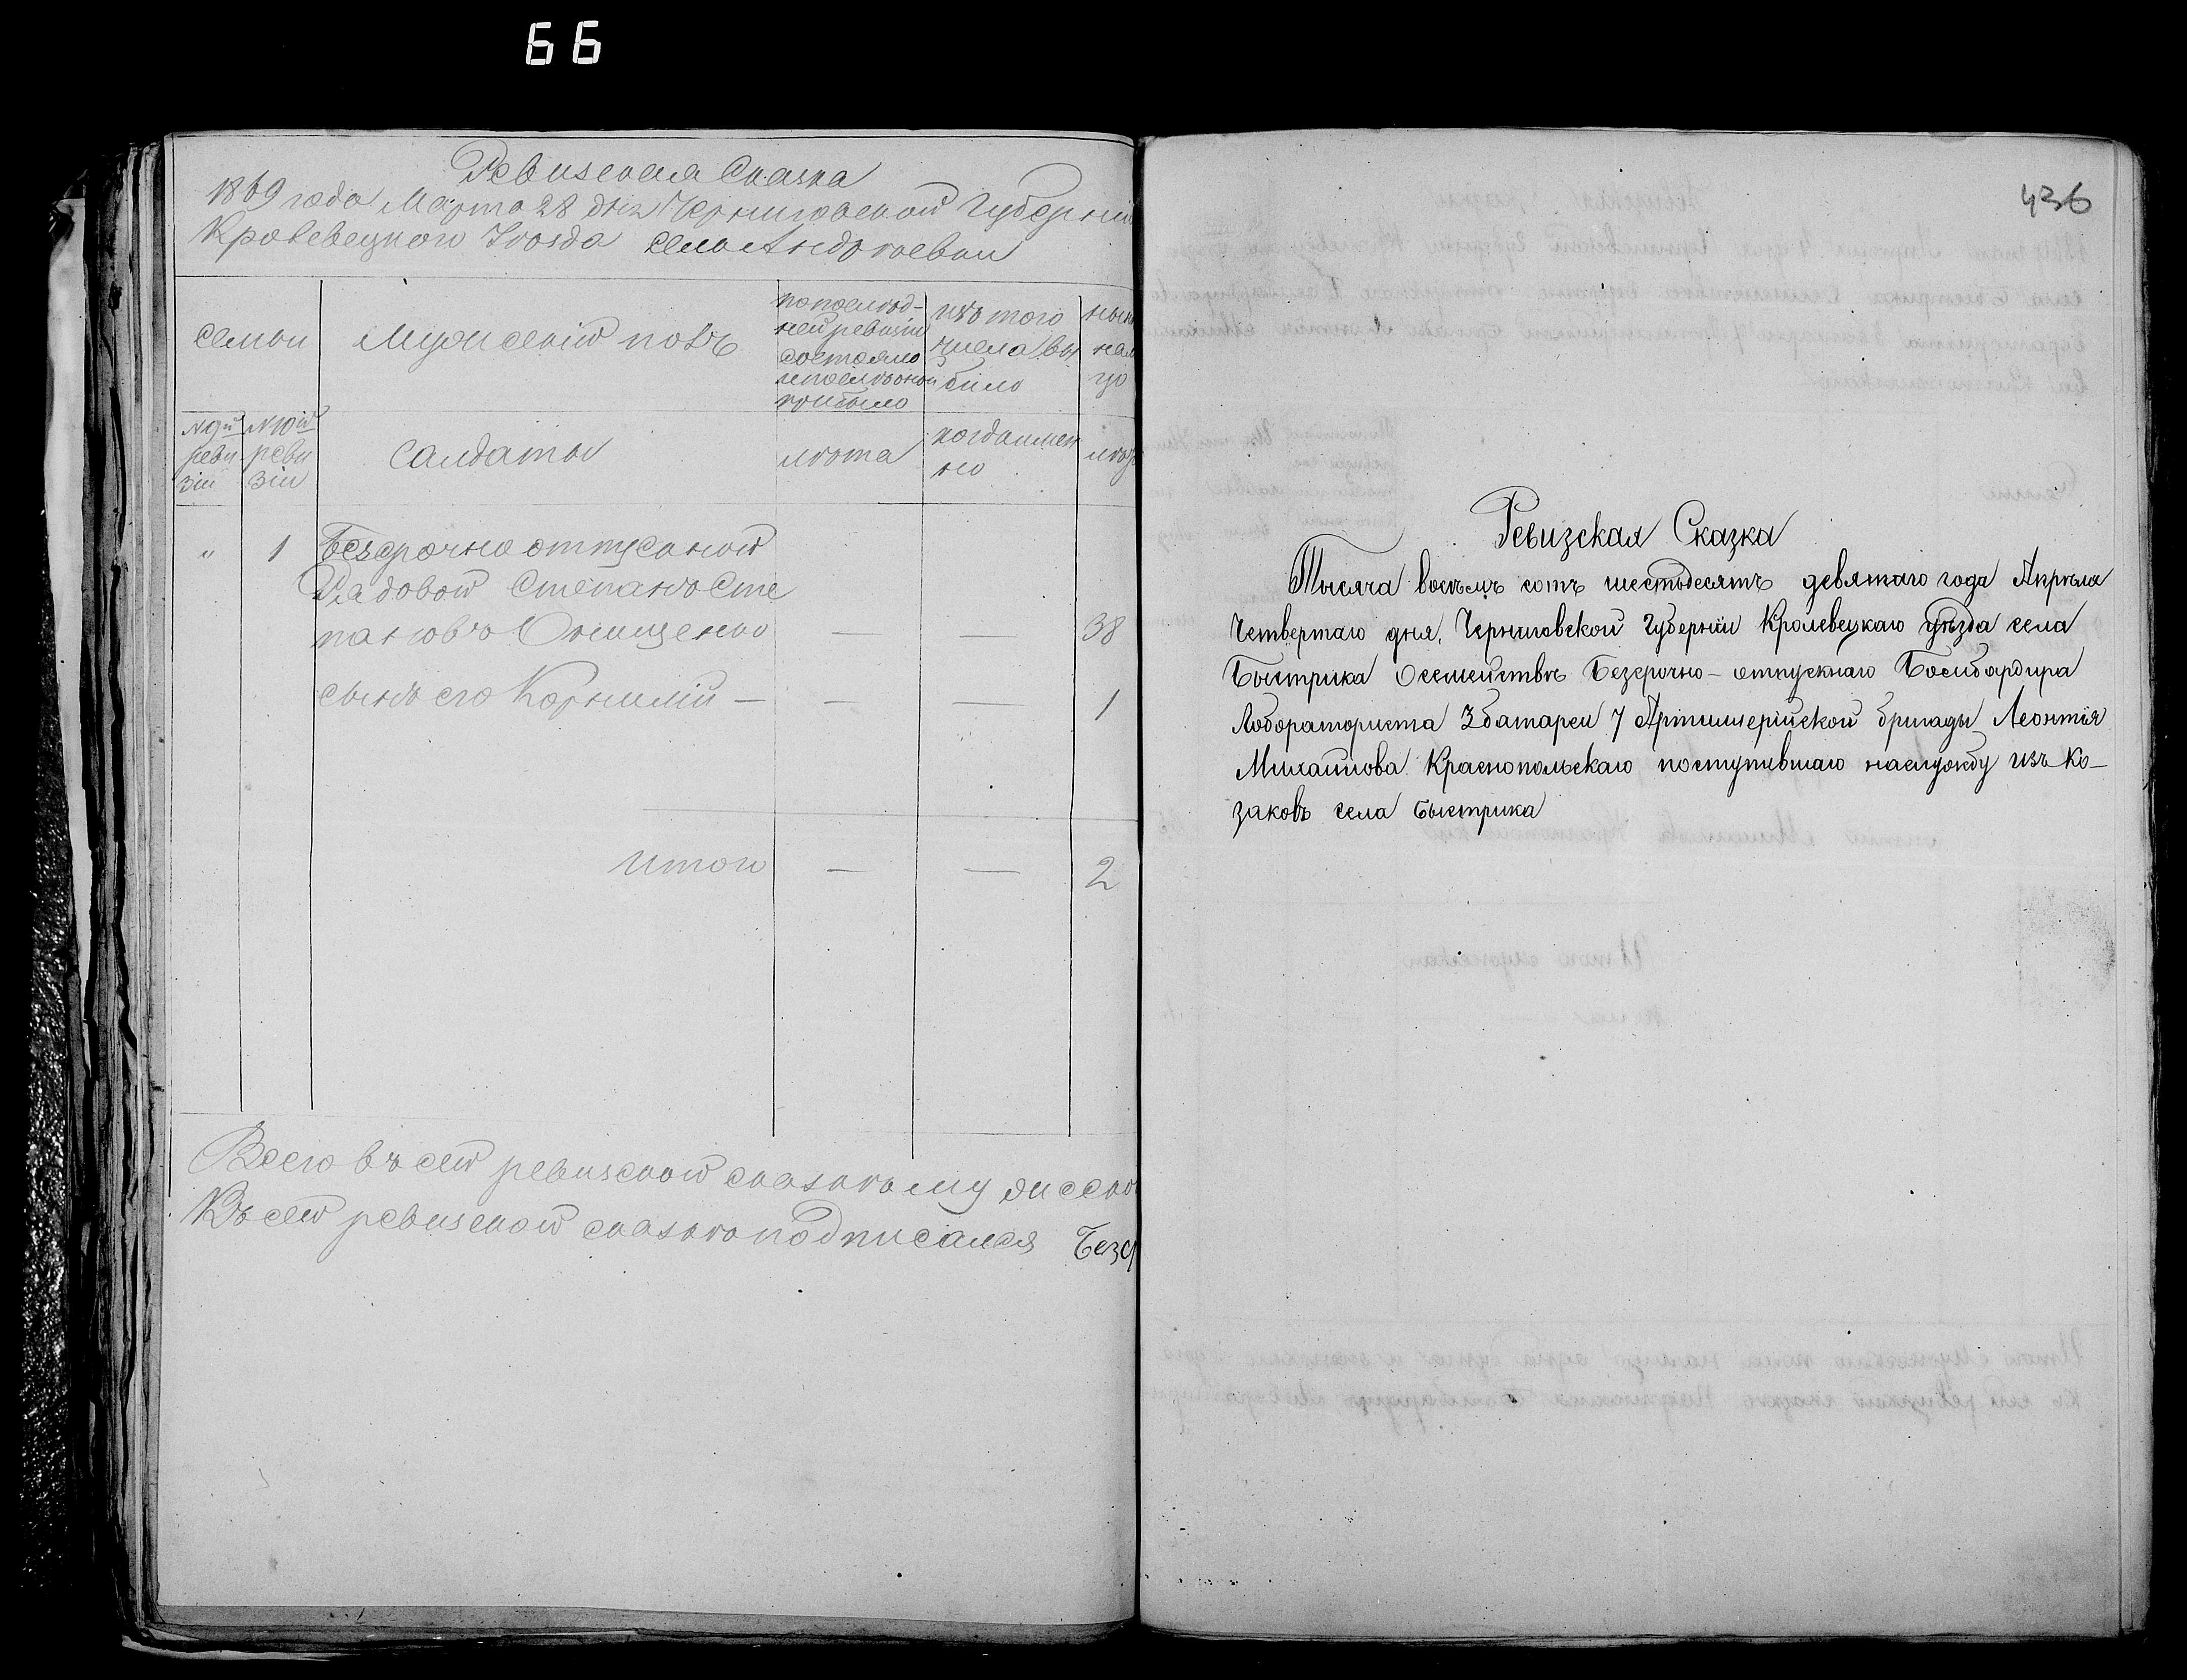 66
Ревизская Сказка
1869 года Марта 28 дня Черниговской Губерніи
Кролевецкого Уѣзда села Андрѣевки
семьи
Мужескій полъ
по послѣд-
ней ревизіи
состояло
и послѣ оной
прибыло
изъ того
числа вы
было
нынѣ
на ли
цо
№ 9й
реви
зіи
№ 10й
реви
зіи
Салдаты
лѣта
когда имен
но
лѣта
" 1 Безсрочно отпускной
Рядовой Степанъ Сте
пановъ Онищенко — — 38
сынъ его Корнилій — — — 1
Итого — — 2
Всего въ сей ревиской сказкѣ му
Къ сей ревиской сказкѣ подписался Безср
436
Ревизская Сказка
Тысяча восемъ сотъ шестьдесятъ девятаго года Апрѣля
Четвертаго дня, Черниговской Губерніи Кролевецкаго уѣзда села
Быстрика Осемействѣ Безсрочно-отпускнаго Бомбардира
Лобораториста 3 батареи 7 Артиллерійской бригады Леонтія
Михайлова Краснопольскаго поступившаго наслужбу изъ Ко-
заковъ села Быстрика